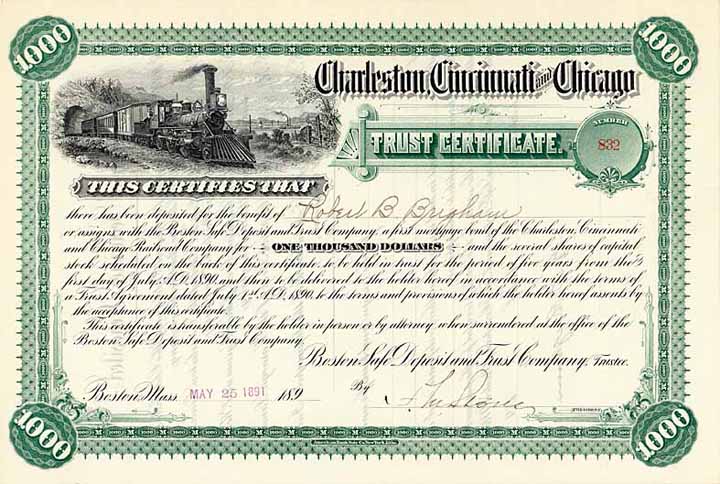 1000
1000
Charleston, Cincinnati and Chicago
TRUST CERTIFICATE.
NUMBER
832
THIS CERTIFIES THAT
there has been deposited for the benefit of Robert B. Brigham
or assigns with the Boston Safe Deposit and Trust Company, a first mortgage bond of the Charleston, Cincinnati
and Chicago Railroad Company for ONE THOUSAND DOLLARS and the several shares of capital
stock scheduled on the back of this certificate, to be held in trust for the period of five years from the
first day of July A.D. 1890, and then to be delivered to the holder hereof in accordance with the terms of
a Trust Agreement dated July 1st A.D. 1890, to the terms and provisions of which the holder hereof assents by
the acceptance of this certificate.
This certificate is transferable by the holder in person or by attorney when surrendered at the office of the
Boston Safe Deposit and Trust Company.
Boston Safe Deposit and Trust Company, Trustee.
Boston Mass. MAY 25 1891 189
By
PRESIDENT
1000
1000